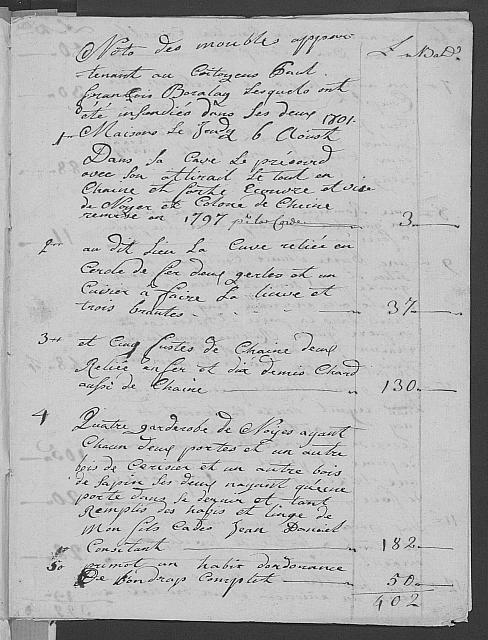 Note des meubles appar
tenant au Citoyens Paul
François Bozalay lesquels ont
été insandiés dans ses deux
Maisons Le Jeudy 6 Aoust 1801.
1 Dans sa Cave Le présoird
avec son attirail Le tout en
Chaine et forte Ecouvre et vise
de Noyer et Colone de Cheine
remise en 1797 — 3
2 au dit Lieu La Cuve reliée en
Cercle de fer deux gerles et un
Cuivier à faire La lisive et
trois brantes — 37
3 et Cinq fustes de Chaine deux
Reliée en fer et dix demis Chard
aussi de Chaine — 130
4 Quatre garderobe de Noyes ayant
Chaun deux portes et un autre
bois de Cerisier et un autre bois
de sapin Les deux nayant qu'une
porte dans le dernier et tant
Remplis des habis et linge de
Mon fils Cadet Jean Daniel
Consistant — 182
5 primot un habit dordonance
De bon drap Complet — 50
402